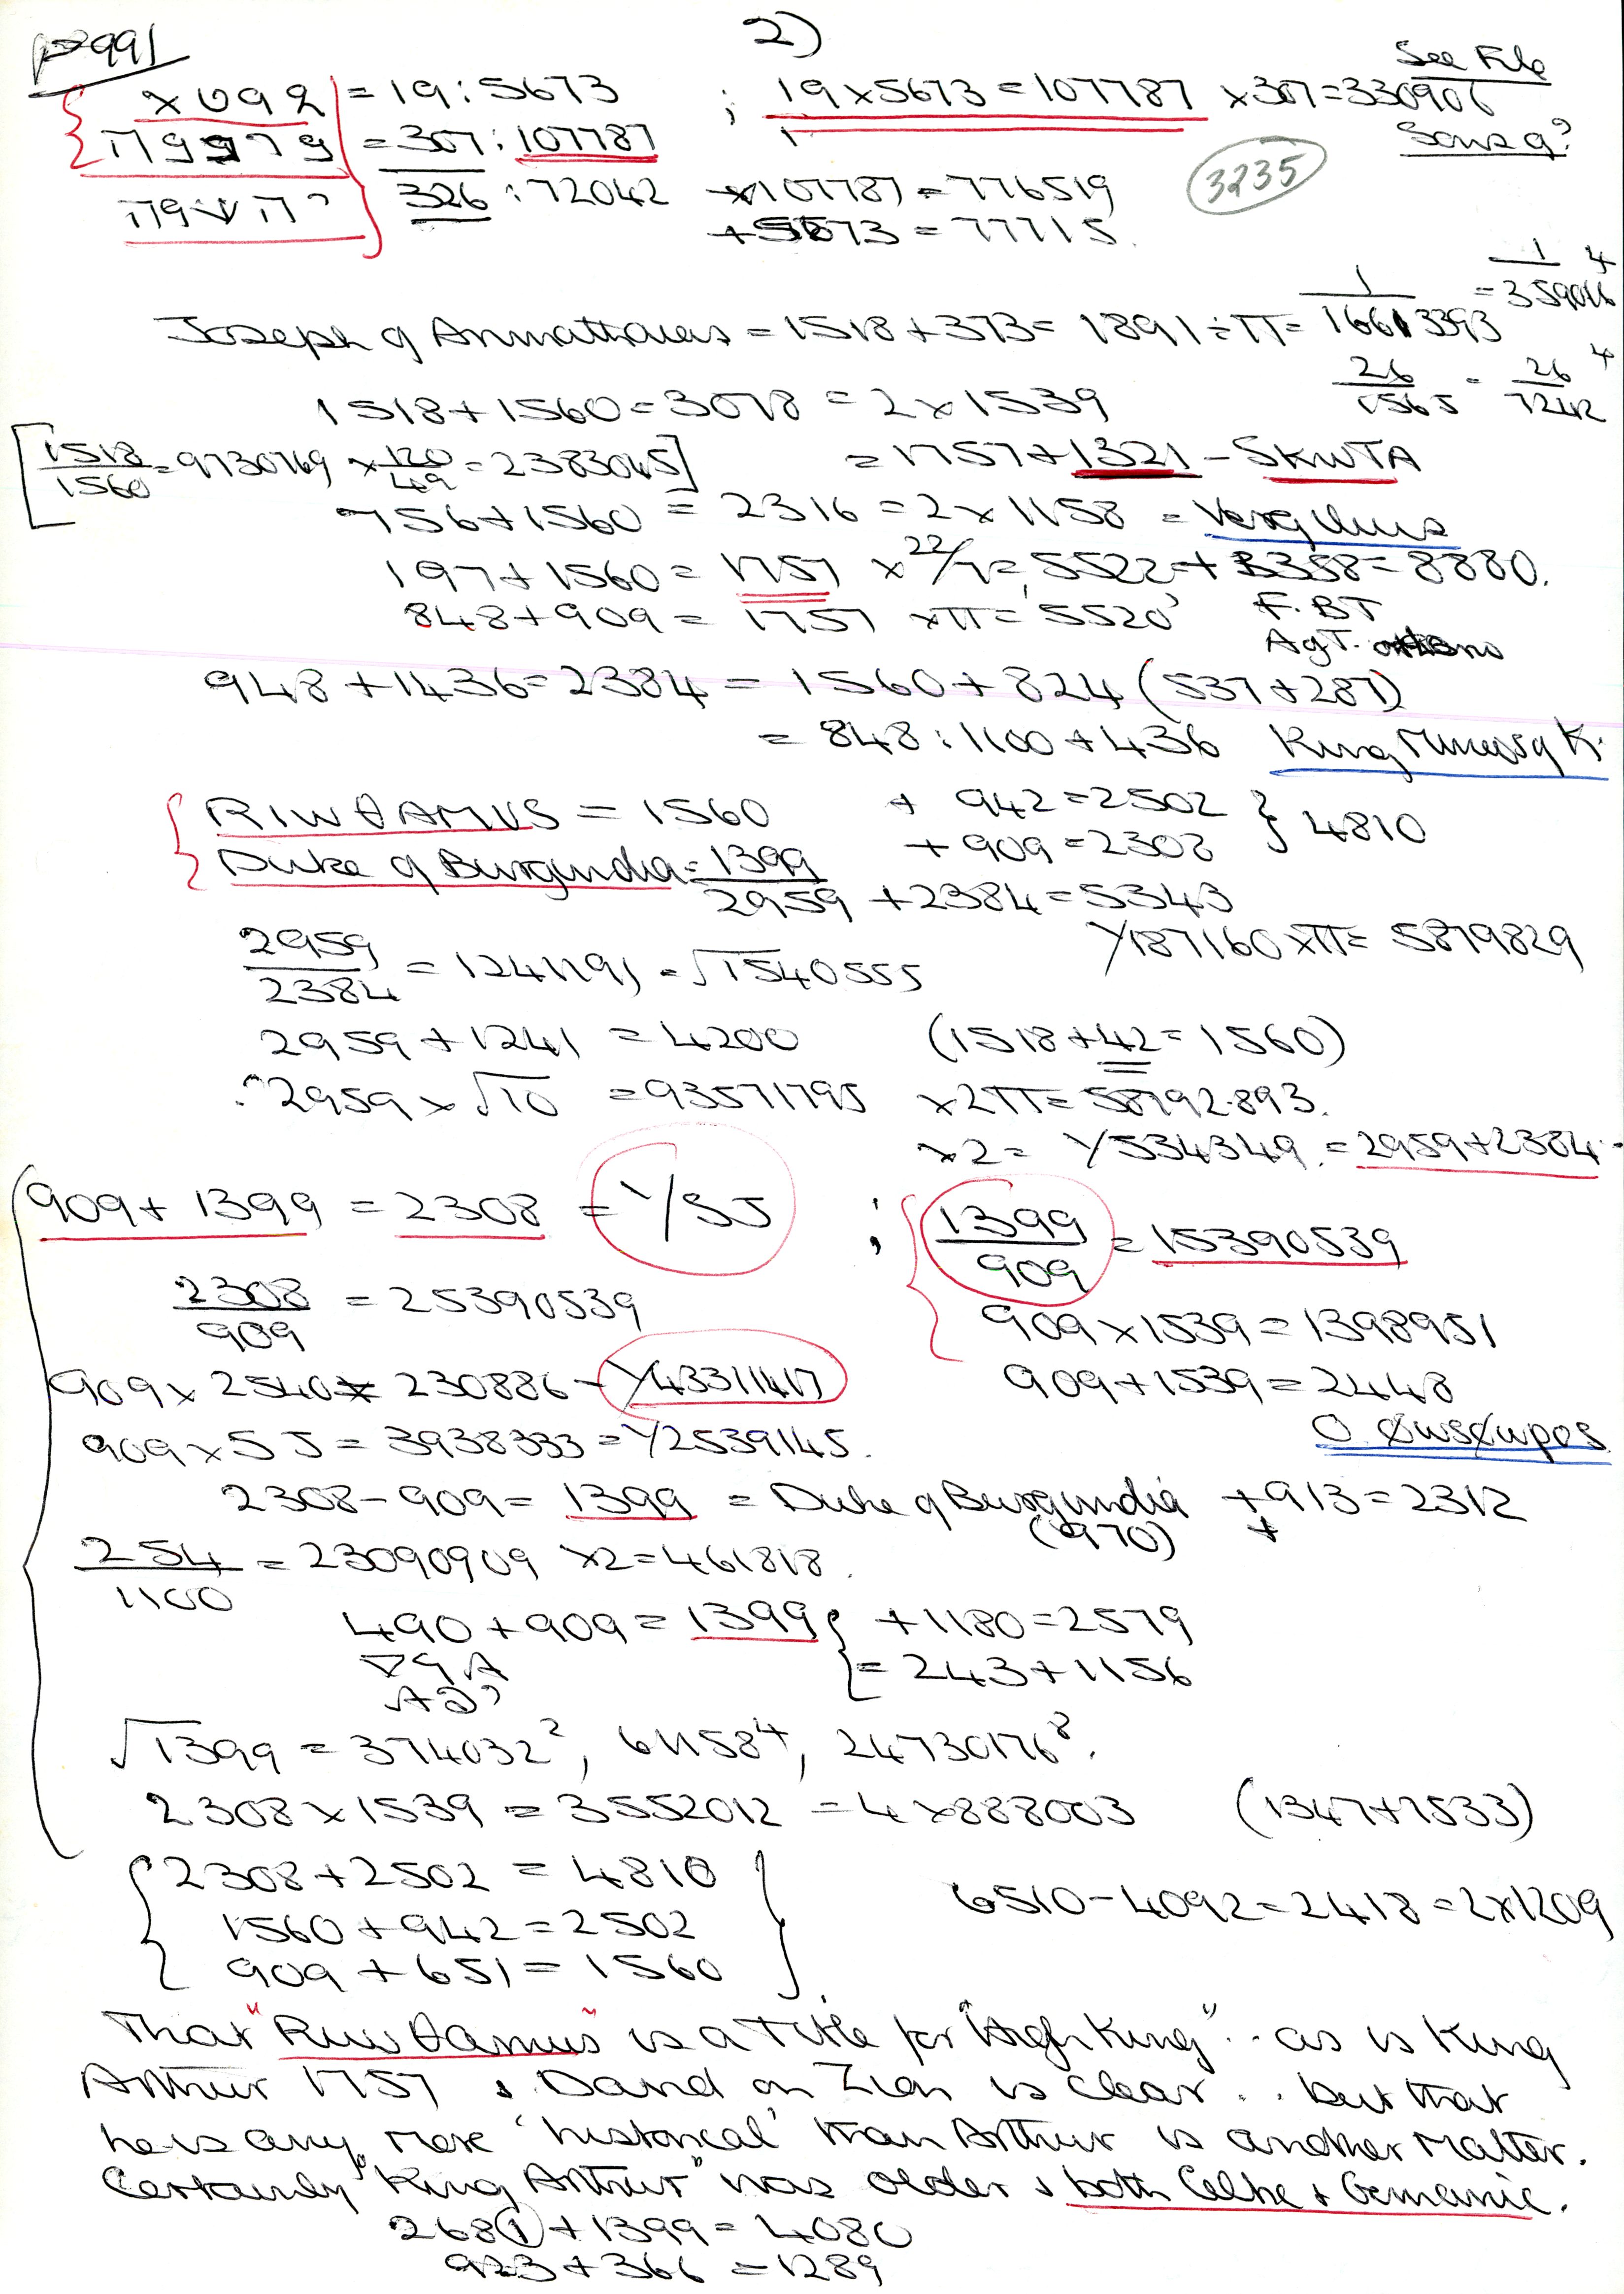 P991
2)
See File
= 19 : 5673 ; 19 x 5673 = 107787 x 307 = 330906
= 307 : 107787
3235
326 : 72042 x 107787 = 776519
+ 5673 = 77715
1518 + 373 = 1891 ÷ π =
Joseph of
1518 + 1560 = 3078 = 2 x 1539
26/1565 = 26/7242 4
[1518/1560 = 9730769 x 120/49 = 2383045]
= 1757 + 1321 - SKWTA
756 + 1560 = 2316 = 2 x 1158 =
197 + 1560 = 1757 x 22/7 = 5522 + 3358 = 8880.
848 + 909 = 1757 x π = 5520
F. BT
AgT.
948 + 1436 = 2384 = 1560 + 824 (537 + 287)
= 848 : 1100 + 436 King
RIWθAMUS = 1560 + 942 = 2502 } 4810
Duke of Burgundia = 1399 + 909 = 2308
2959 + 2384 = 5343
2959/2384 = 1241191 = √1540555
1/187160 x π = 5879829
2959 + 1241 = 4200 (1518 + 42 = 1560)
∴ 2959 x √10 = 93571795 x 2π = 58792.893.
x 2 = 1/534349 = 2959 + 2384
909 + 1399 = 2308 = 1/SJ ; 1399/909 = 15390539
2308/909 = 25390539
909 x 1539 = 1398951
909 x 2540 = 230886 - 1/43311417
909 + 1539 = 2448
909 x SJ = 3938333 = 1/2539145.
2308 - 909 = 1399 = Duke of Burgundia + 913 = 2312
(970) +
254/1100 = 23090909 x 2 = 461818.
490 + 909 = 1399 } + 1180 = 2579
= 243 + 1156
√1399 = 374032², 61158⁴, 24730176⁸.
2308 x 1539 = 3552012 = 4 x 888003 (1347 + 7533)
2308 + 2502 = 4810
6510 - 4092 = 2418 = 2x1209
1560 + 942 = 2502
909 + 651 = 1560
That "Riwθamus" is a title for "High King" .. as is King
Arthur 1757 & David on Zion is clear .. but that
he is any more 'historical' than Arthur is another matter.
Certainly "King Arthur" was older & both Celtic & Germanic.
268(1) + 1399 = 4080
923 + 366 = 1289